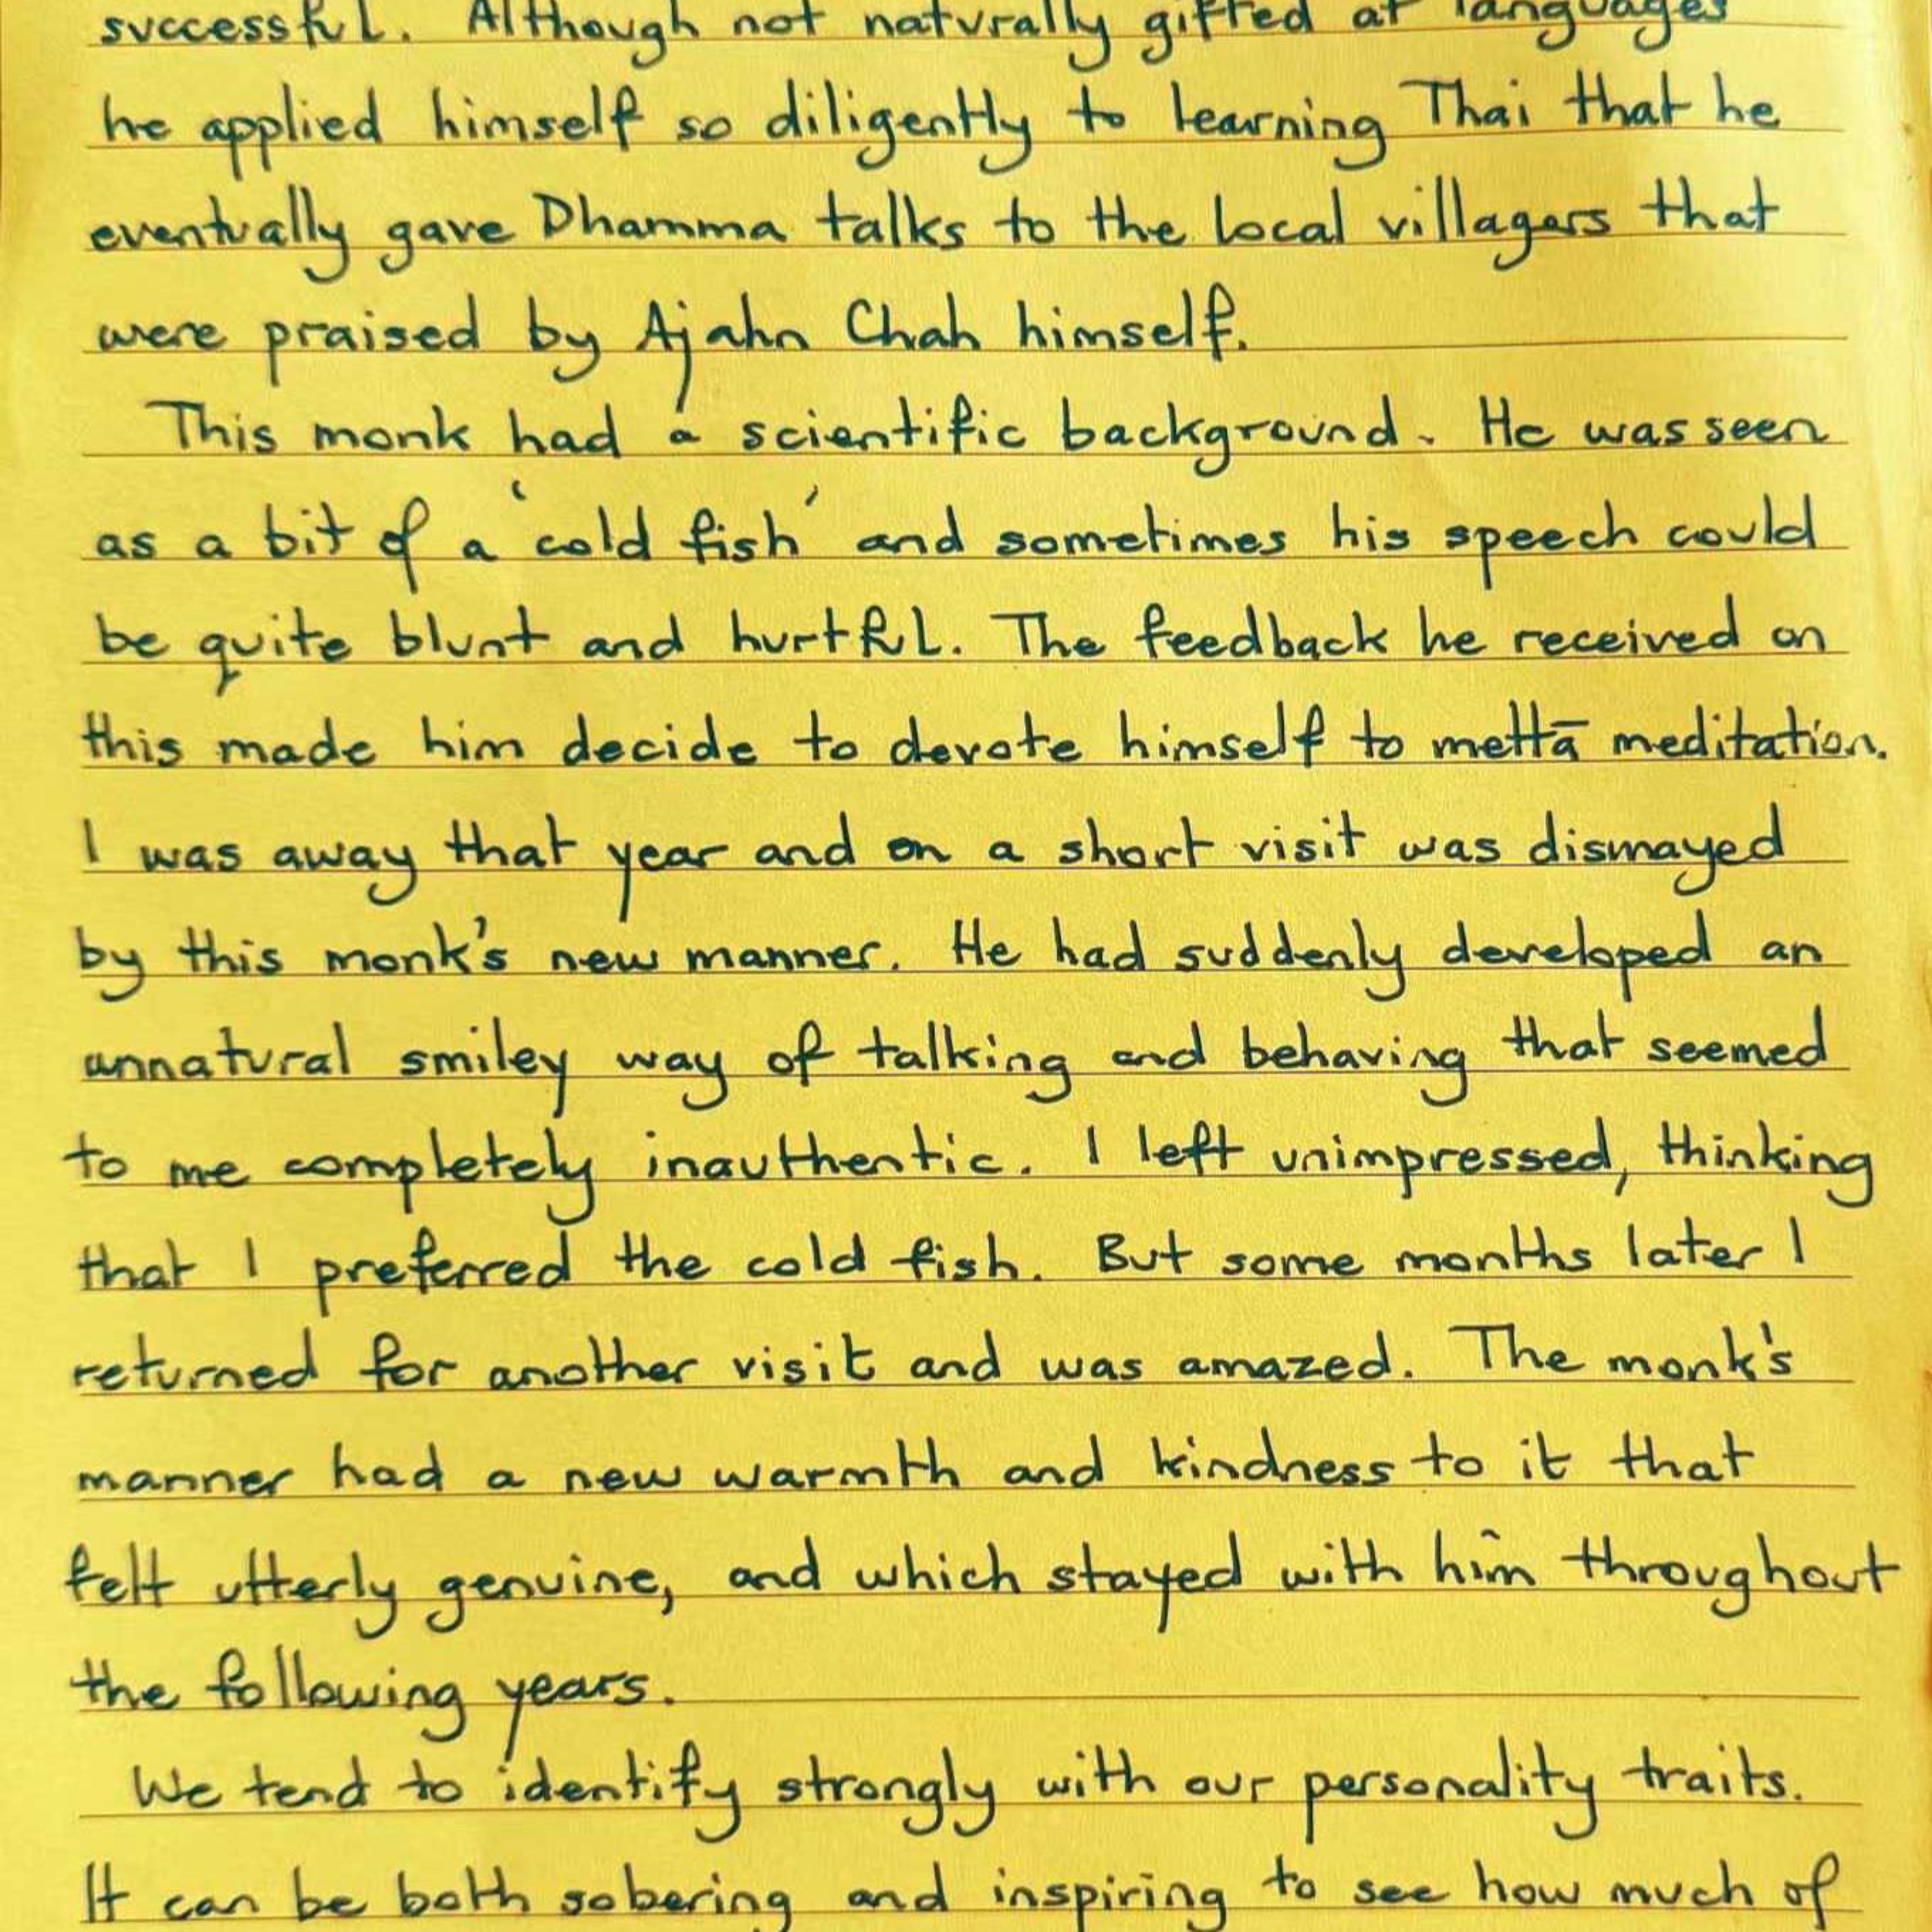 successful. Although not naturally gifted at languages
he applied himself so diligently to learning Thai that he
eventually gave Dhamma talks to the local villagers that
were praised by Ajahn Chah himself.
This monk had a scientific background. He was seen
as a bit of a 'cold fish' and sometimes his speech could
be quite blunt and hurtful. The feedback he received on
this made him decide to devote himself to mettā meditation.
I was away that year and on a short visit was dismayed
by this monk's new manner. He had suddenly developed an
unnatural smiley way of talking and behaving that seemed
to me completely inauthentic. I left unimpressed, thinking
that I preferred the cold fish. But some months later I
returned for another visit and was amazed. The monk's
manner had a new warmth and kindness to it that
felt utterly genuine, and which stayed with him throughout
the following years.
We tend to identify strongly with our personality traits.
It can be both sobering and inspiring to see how much of